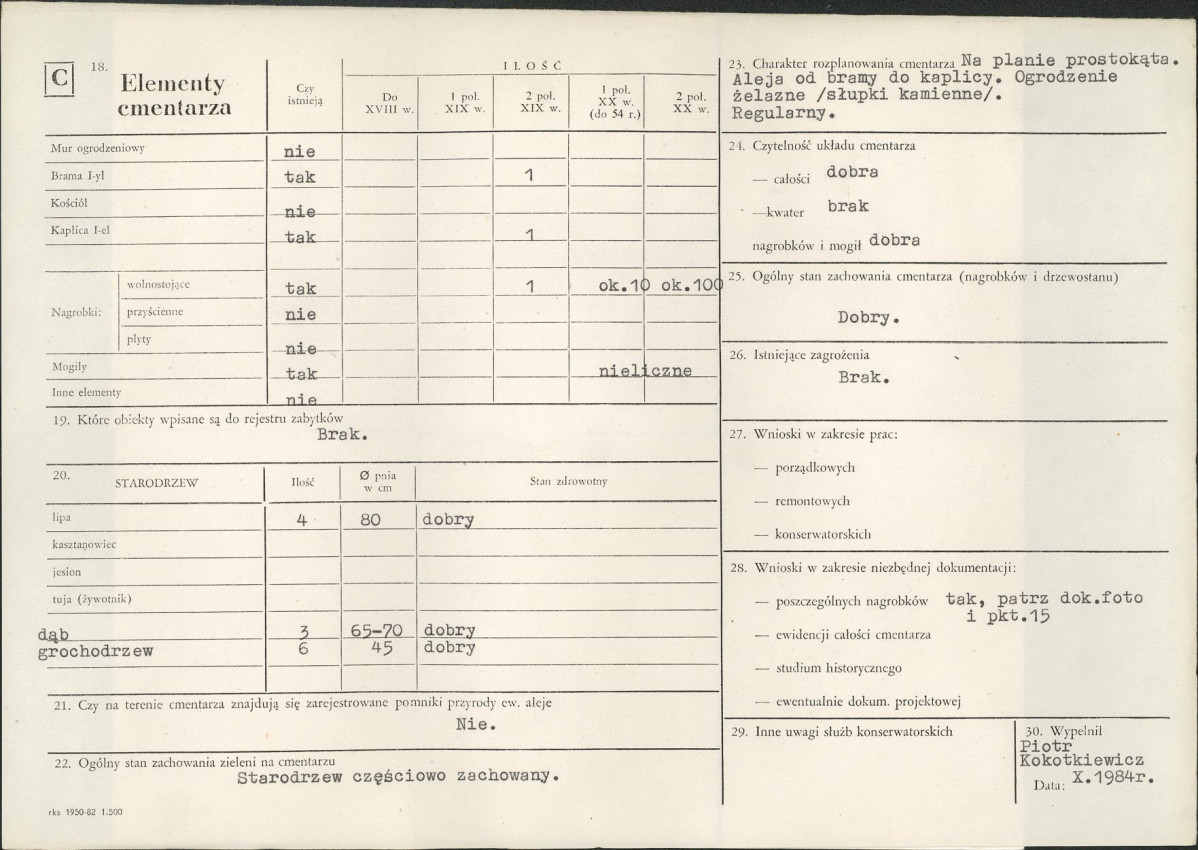 C
18. Elementy
cmentarza
Czy
istnieją
ILOŚĆ
Do
XVIII w.
1 poł.
XIX w.
2 poł.
XIX w.
1 poł.
XX w.
(do 54 r.)
2 poł.
XX w.
Mur ogrodzeniowy nie
Brama I-yl tak 1
Kościół nie
Kaplica I-el tak 1
Nagrobki:
wolnostojące tak 1 ok.10 ok.100
przyścienne nie
płyty nie
Mogiły tak nieliczne
Inne elementy nie
19. Które obiekty wpisane są do rejestru zabytków
Brak.
20. STARODRZEW Ilość Ø pnia
w cm Stan zdrowotny
lipa 4 80 dobry
kasztanowiec
jesion
tuja (żywotnik)
dąb 3 65-70 dobry
grochodrzew 6 45 dobry
21. Czy na terenie cmentarza znajdują się zarejestrowane pomniki przyrody ew. aleje
Nie.
22. Ogólny stan zachowania zieleni na cmentarzu
Starodrzew częściowo zachowany.
rks 1950-82 1.500
23. Charakter rozplanowania cmentarza Na planie prostokąta.
Aleja od bramy do kaplicy. Ogrodzenie
żelazne /słupki kamienne/.
Regularny.
24. Czytelność układu cmentarza
— całości dobra
—kwater brak
nagrobków i mogił dobra
25. Ogólny stan zachowania cmentarza (nagrobków i drzewostanu)
Dobry.
26. Istniejące zagrożenia
Brak.
27. Wnioski w zakresie prac:
— porządkowych
— remontowych
— konserwatorskich
28. Wnioski w zakresie niezbędnej dokumentacji:
— poszczególnych nagrobków tak, patrz dok.foto
i pkt.15
— ewidencji całości cmentarza
— studium historycznego
— ewentualnie dokum. projektowej
29. Inne uwagi służb konserwatorskich
30. Wypełnił
Piotr
Kokotkiewicz
Data: X.1984r.